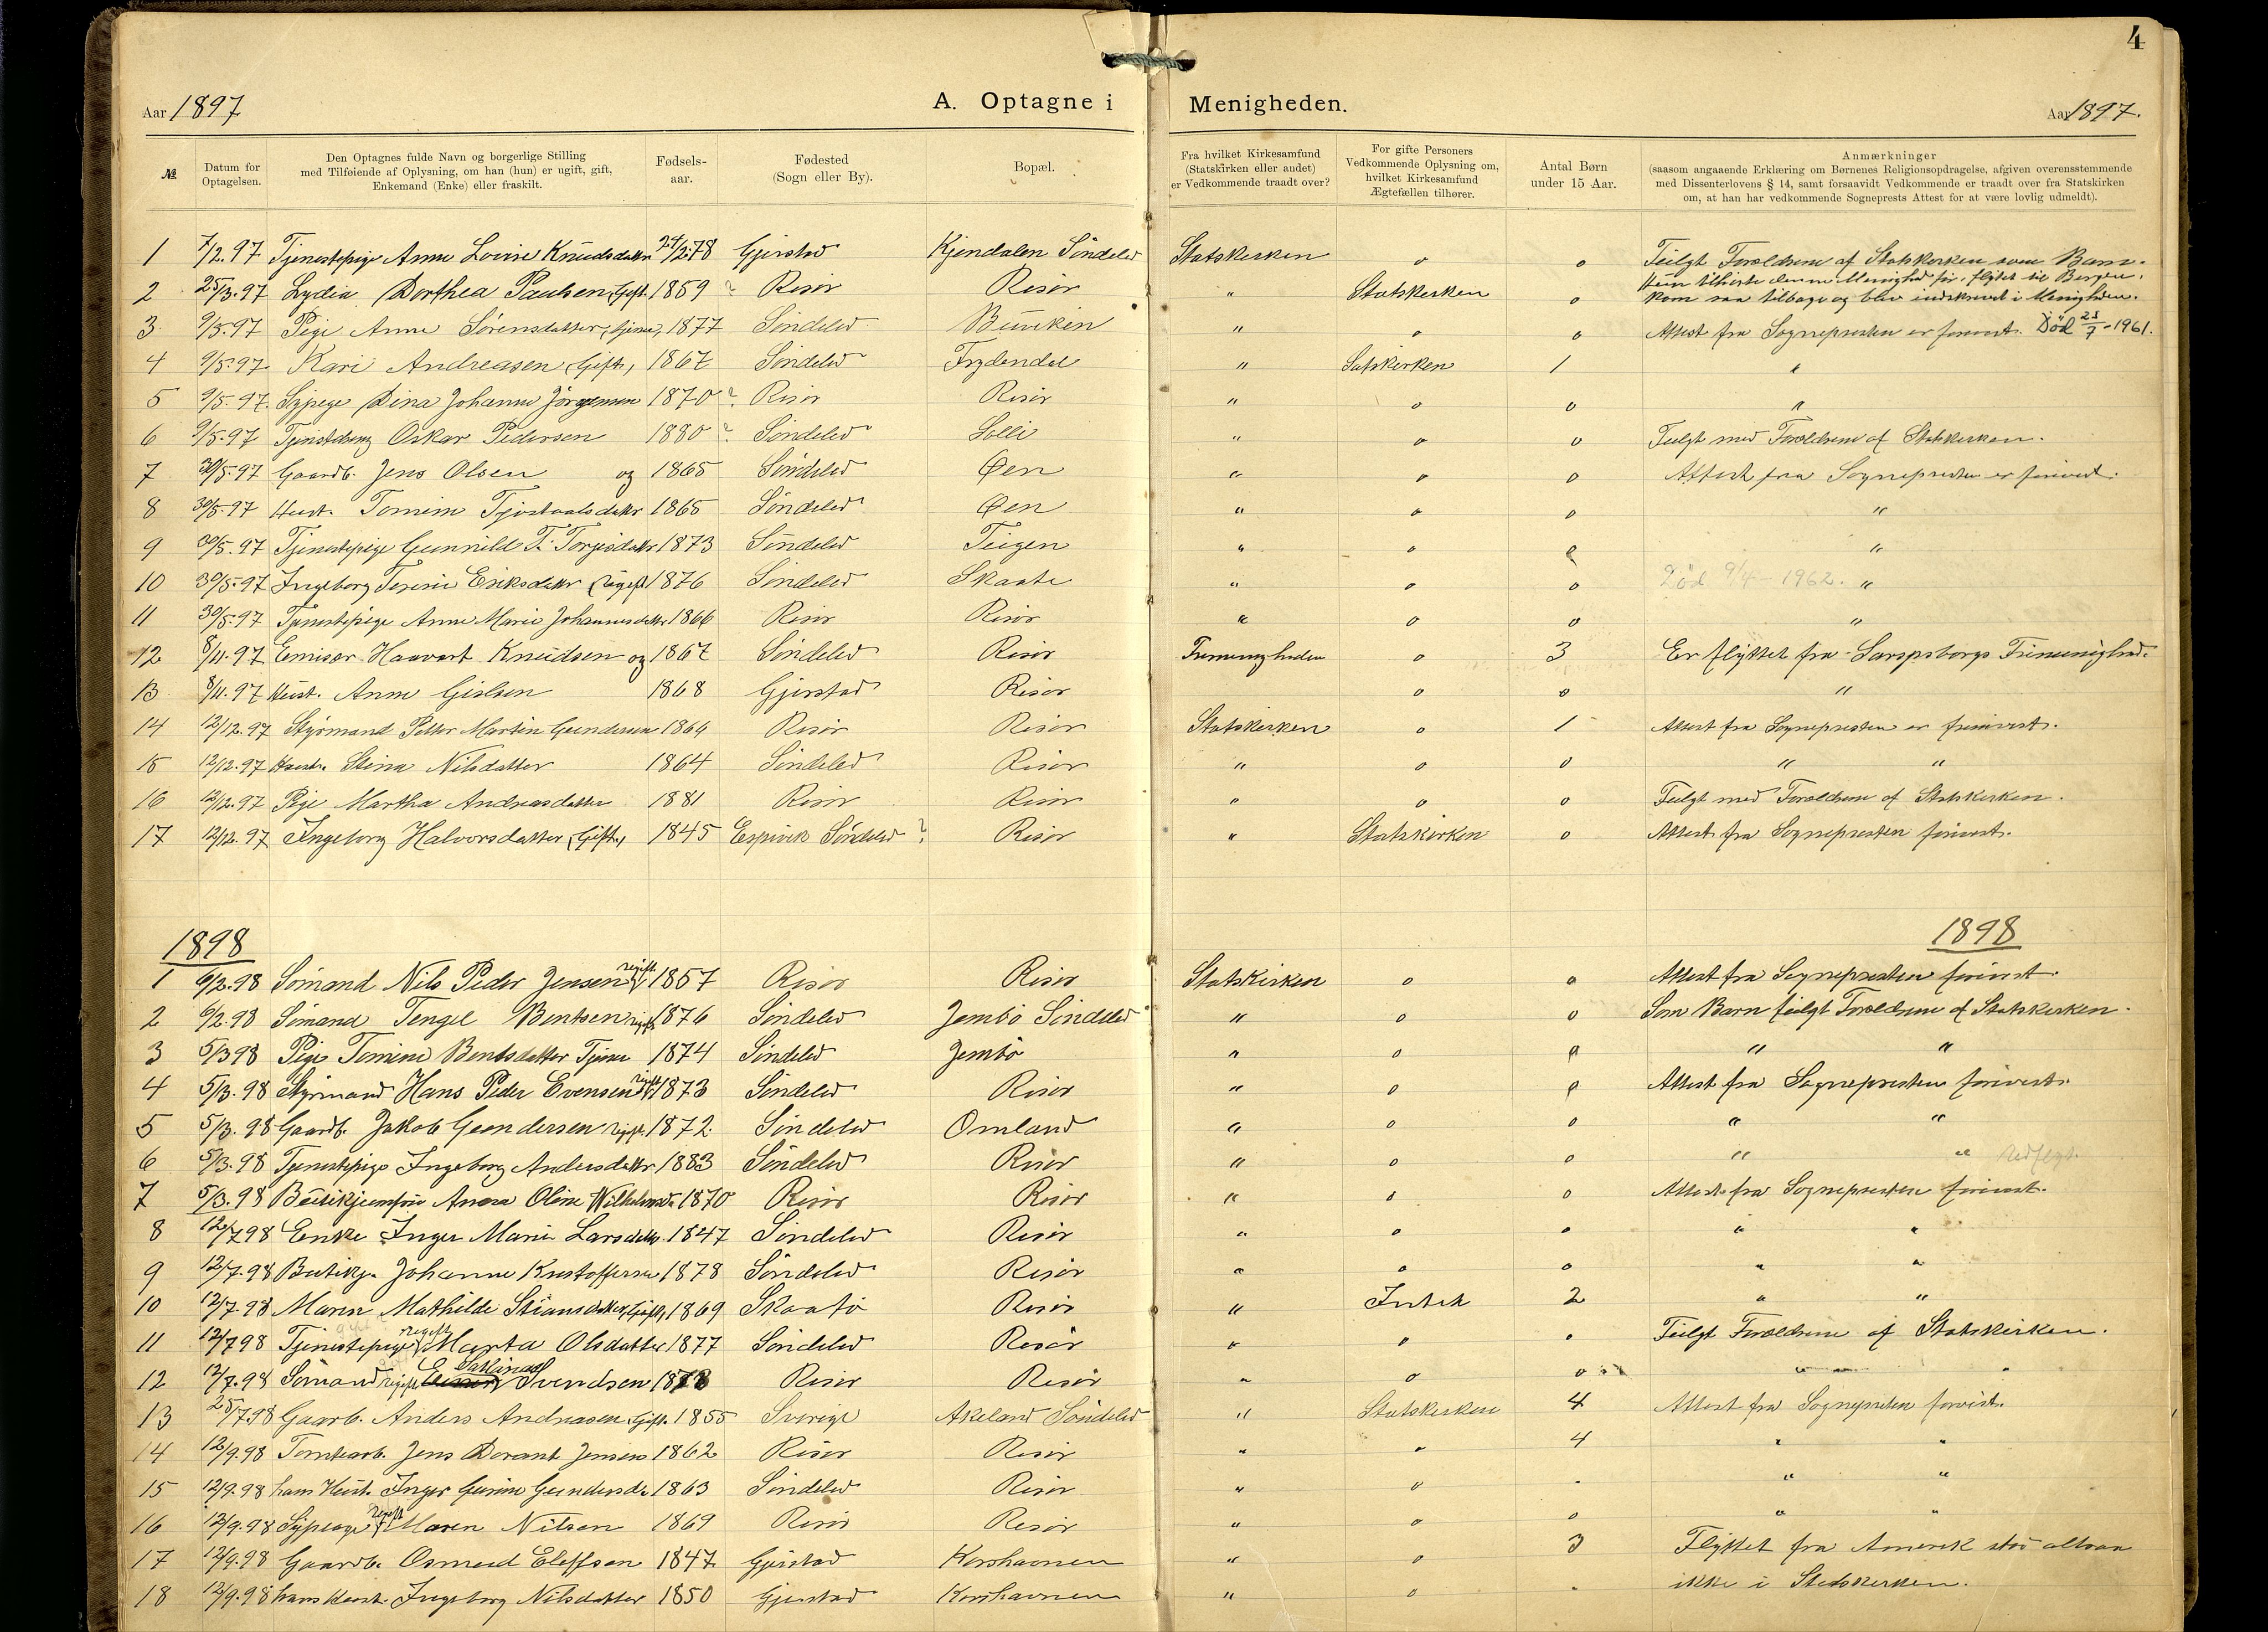 4
Aar 1897 A. Optagne i Menigheden. Aar 1897.
№ Datum for Optagelsen. Den Optagnes fulde Navn og borgerlige Stilling med Tilføiende af Oplysning, om han (hun) er ugift, gift, Enkemand (Enke) eller fraskilt. Fødsels-aar. Fødested (Sogn eller By). Bopæl. Fra hvilket Kirkesamfund (Statskirken eller andet) er Vedkommende traadt over? For gifte Personers Vedkommende Oplysning om, hvilket Kirkesamfund Ægtefællen tilhører. Antal Børn under 15 Aar. Anmærkninger (saasom angaaende Erklæring om Børnenes Religionsopdragelse, afgiven overensstemmende med Dissenterlovens § 14, samt forsaavidt Vedkommende er traadt over fra Statskirken om, at han har vedkommende Sogneprests Attest for at være lovlig udmeldt).
1 7/2.97 Tjenestepige Anne Lovise Knudsdatter 24/2.78 Gjerstad Kjendalen Søndeled Statskirken o o Fulgt Forældrene af Statskirken som Barn.
2 25/3.97 Lydia Dorthea Paulsen, Gift. 1859 ? Risør Risør " Statskirken o Hun tilhørte denne Menighed før, flyttet til Bergen, kom saa tilbage og blev indskrevet i Menigheden.
3 9/5.97 Pige Anne Sørensdatter, tjener, 1877 Søndeled Buvikin " o o Attest fra Sognepresten er forevist. Død 23/7-1961.
4 9/5.97 Kari Andreasen (Gift), 1867 Søndeled Frydendal " Satskirken 1 "
5 9/5.97. Sypige Dina Johanne Jørgensen 1870 ? Risør Risør " o o "
6 9/5.97 Tjenestdreng Oskar Pedersen 1880 ? Søndeled Solli " o o Fulgt med Forældrene af Statskirken.
7 30/5.97 Gaardb. Jens Olsen og 1865 Søndeled Øen " o o Attest fra Sognepresten er forevist.
8 30/5.97 Hust. Tomine Tjostoolsdatter 1865 Søndeled Øen " o o "
9 30/5.97 Tjenestepige Gunnild T. Torjusdatter 1873 Søndeled Teigen " o o "
10 30/5.97 Ingeborg Terine Eriksdatter (ugift) 1876 Søndeled Skaate " o o Død 9/4-1962. "
11 30/5.97 Tjenestepige Anne Marie Johannesdatter 1866 Risør Risør " o o "
12 8/11.97 Emisær Haavart Knudsen og 1867 Søndeled Risør Frimenigheden o 3 Er flyttet fra Sarpsborgs Frimenighed.
13 8/11.97 Hust. Anne Gislsen 1868 Gjerstad Risør o o "
14 12/12.97 Styrmand Petter Martin Gundersen 1864 Risør Risør Statskirken o 1 Attest fra Sognepresten er forevist.
15 12/12.97 Hust. Stina Nilsdatter 1864 Søndeled Risør " o o " "
16 12/12.97 Pige Martha Andreasdatter 1881 Risør Risør " o o Fulgt med Forældrene af Statskirken.
17 12/12.97 Ingeborg Halvorsdatter (Gift), 1845 Espivik Søndeled ? Risør " Statskirken o Attest fra Sognepresten forevist.
1898 1898
1 6/2.98 Sømand Nils Peder Jensen ugift 1857 Risør Risør Statskirken o o Attest fra Sognepresten forevist.
2 6/2.98 Sømand Tengel Bentsen ugift 1876 Søndeled Jembø Søndeled " o o Som Barn fulgt Forældrene af Statskirken.
3 5/3 98 Pige Tomine Bentsdatter Tjener 1874 Søndeled Jembø " o o " "
4 5/3.98 Styrmand Hans Peder Evensen ugift 1873 Søndeled Risør " o o Attest fra Sognepresten forevist.
5 5/3.98 Gaardb. Jakob Gundersen ugift. 1872 Søndeled Omland " o o " "
6 5/3.98 Tjenestepige Ingeborg Andersdatter 1883 Søndeled Risør " o o " "
7 5/3.98 Butikjomfru Anna Oline Wilhelmsda 1870 Risør Risør " o o Attest fra Sognepresten forevist.
8 12/7 98 Enke Inger Marie Larsdatter 1847 Søndeled Risør " o o " "
9 12/7.98 Butikj. Johanne Kristoffersen 1878 Søndeled Risør " o o " "
10 12/7.98 Maren Mathilde Stiansdatter, Gift, 1869 Skaatø Risør " Intet 2 " "
11 12/7 98 Tjenestepige ugift Marta Olsdatter 1877 Søndeled Risør " o o Fulgt Forældrene af Statskirken.
12 12/7.98 Sømand ugift Svendsen Risør Risør " o o " "
13 25/7.98 Gaarb. Anders Andreasen, Gift. 1855 Sverige Akeland Søndeled " Statskirken 4 Attest fra Sognepresten forvist.
14 12/9.98 Tomtearb. Jens Dorant Jensen 1862 Risør Risør " " 4 " "
15 12/9.98 hans Hust. Inger Gurine Gundersda 1863 Søndeled Risør " o " "
16 12/9.98 Sypige ugift Maren Nilsen 1869 Risør Risør " o o " "
17 12/9.98 Gaardb. Osmund Eleffsen 1847 Gjerstad Korshavnen " o 3 Flyttet fra Amerik stod altsaa
18 12/9.98 hans Hust. Ingeborg Nilsdatter 1850 Gjerstad Korshavnen " o ikke i Statskirken.